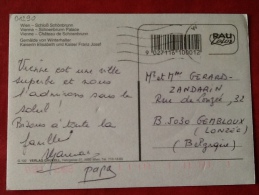 Wien - Schloß Schönbrunn
Vienna - Schoenbrunn Palace
Vienne - Château de Schoenbrunn
Gemälde von Winterhalter
Kaiserin Elisabeth und Kaiser Franz Josef
RAU
Vienne est une ville
superbe et nous
l'admirons sous le
soleil !
Bisous à toute la
famille
papa
Mr et Mme GERARD-
ZANDARIN
Rue de Lonzée, 32
B. 5030 GEMBLOUX
(LONZEE)
(Belgique)